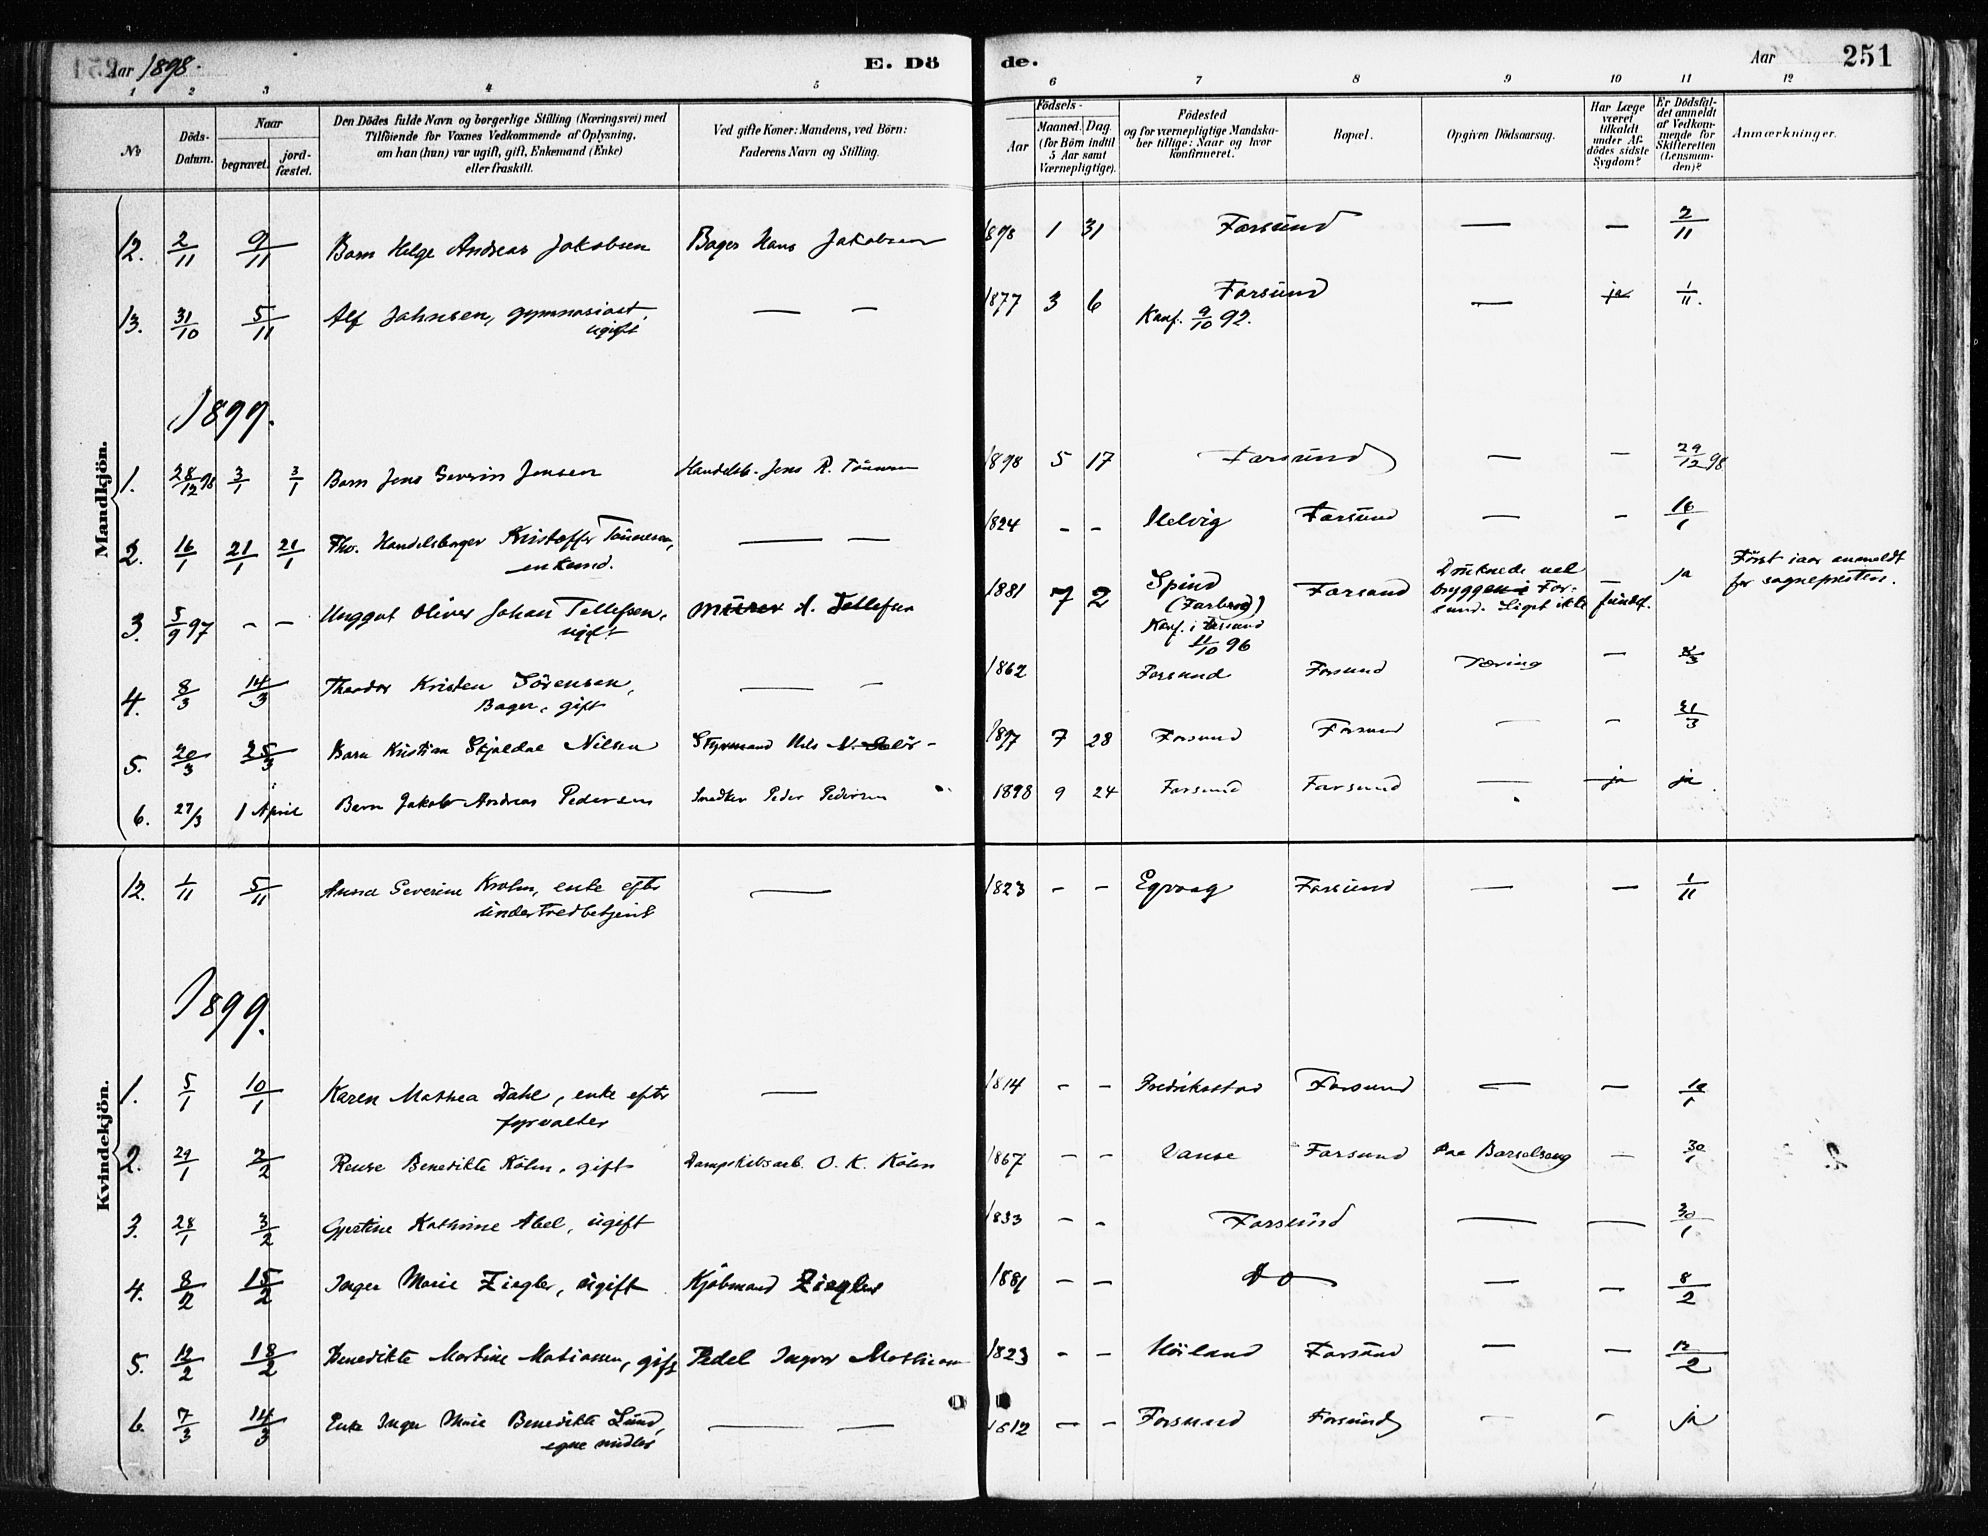 Aar 1898. E. Döde. Aar 251
1 2 3 4 5 6 7 8 9 10 11 12
No
Döds-Datum.
Naar
begravet. jordfæstet.
Den Dödes fulde Navn og borgerlige Stilling (Næringsvei) med
Tilföiende for Voxnes Vedkommende af Oplysning,
om han (hun) var ugift, gift, Enkemand (Enke)
eller fraskilt.
Ved gifte Koner: Mandens, ved Börn:
Faderens Navn og Stilling.
Födsels-
Aar
Maaned. Dag
(for Börn indtil
5 Aar samt
Værnepligtige).
Födested
og for værnepligtige Mandska-
ber tillige: Naar og hvor
konfirmeret.
Bopæl.
Opgiven Dödsaarsag.
Har Læge
været
tilkaldt
under Af-
dödes sidste
Sygdom?
Er Dödsfal-
det anmeldt
af Vedkom-
mende for
Skifteretten
(Lensman-
den)?
Anmærkninger.
Mandkjön.
12. 2/11 9/11 Barn Helge Andreas Jakobsen Bager Hans Jakobsen 1898 1 31 Farsund — — 2/11
13. 31/10 5/11 Alf Jahnsen, gymnasiast, — — 1877 3 6 Farsund — ja 1/11.
ugift Konf. 9/10 92.
1899.
1. 28/12 98 3/1 3/1 Barn Jens Severin Jensen Handelsb. Jens R. Tönnesen 1898 5 17 Farsund — — 29/12 98
2. 16/1 21/1 21/1 Fhv. Handelsborger Kristoffer Tönnesen, — — 1824 - - Helvig Farsund — - 16/1
enkemd.
3. 5/9 97 - - Unggut Oliver Johan Tellefsen, Murer A. Tellefsen 1881 7 2 Spind Farsund Druknede ved — ja Först iaar anmeldt
ugift (Farbrod) bryggen i Far- for sogneprsten.
Konf. i Farsund sund. Liget ikke fundet.
11/10 96
4. 8/3 14/3 Theodor Kristen Sörensen, — — 1862 Farsund Farsund Tæring — 8/3
Bager, gift
5. 20/3 25/3 Barn Kristian Skjoldal Nilsen Styrmand Nils 1897 7 28 Farsund Farsund — - 21/3
6. 27/3 1 April Barn Jakob Andreas Pedersen Snedker Peder Pedersen 1898 9 24 Farsund Farsund — ja ja.
Kvindekjön.
12. 1/11 5/11 Anna Severine Krohn, enke efter — 1823 - - Egvaag Farsund — — 1/11
1899.
1. 5/1 10/1 Karen Mathea Dahl, enke efter — 1814 - - Fredrikstad Farsund — — 10/1
fyrvakter
2. 29/1 2/2 Benedikte Köhn, gift Dampskibsarb. O. K. Köhn 1867 - - Vanse Farsund Paa Barselseng — 30/1
3. 28/1 3/2 Gjertine Kathrine Abel, ugift 1833 - - Farsund — — 30/1
4. 8/2 15/2 Inger Marie Ziegler, ugift Kjöbmand Ziegler 1881 - - do — — 8/2
5. 12/2 18/2 Benedikte Martine Matiassen, gift Pedel Ingvar Mathiasen 1823 - - Höiland Farsund — — 12/2
6. 7/3 14/3 Enke Inger Marie Benedikte Lund, — — 1812 - - Farsund Farsund — - ja
egne midler